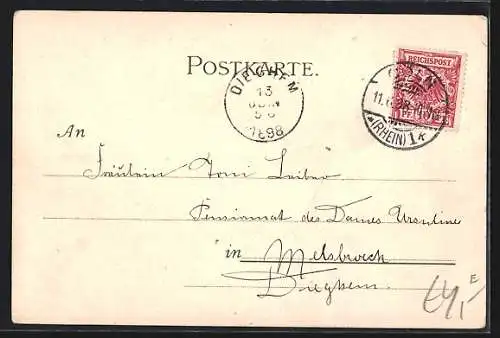 POSTKARTE.
DIEGHEM
13
JUIN
1898
REICHSPOST
11.6.98
*(RHEIN)1*
An
Fräulein Toni Leiber
Pensionnat des Dames Ursulines
in Melsbroeck
Dieghem.